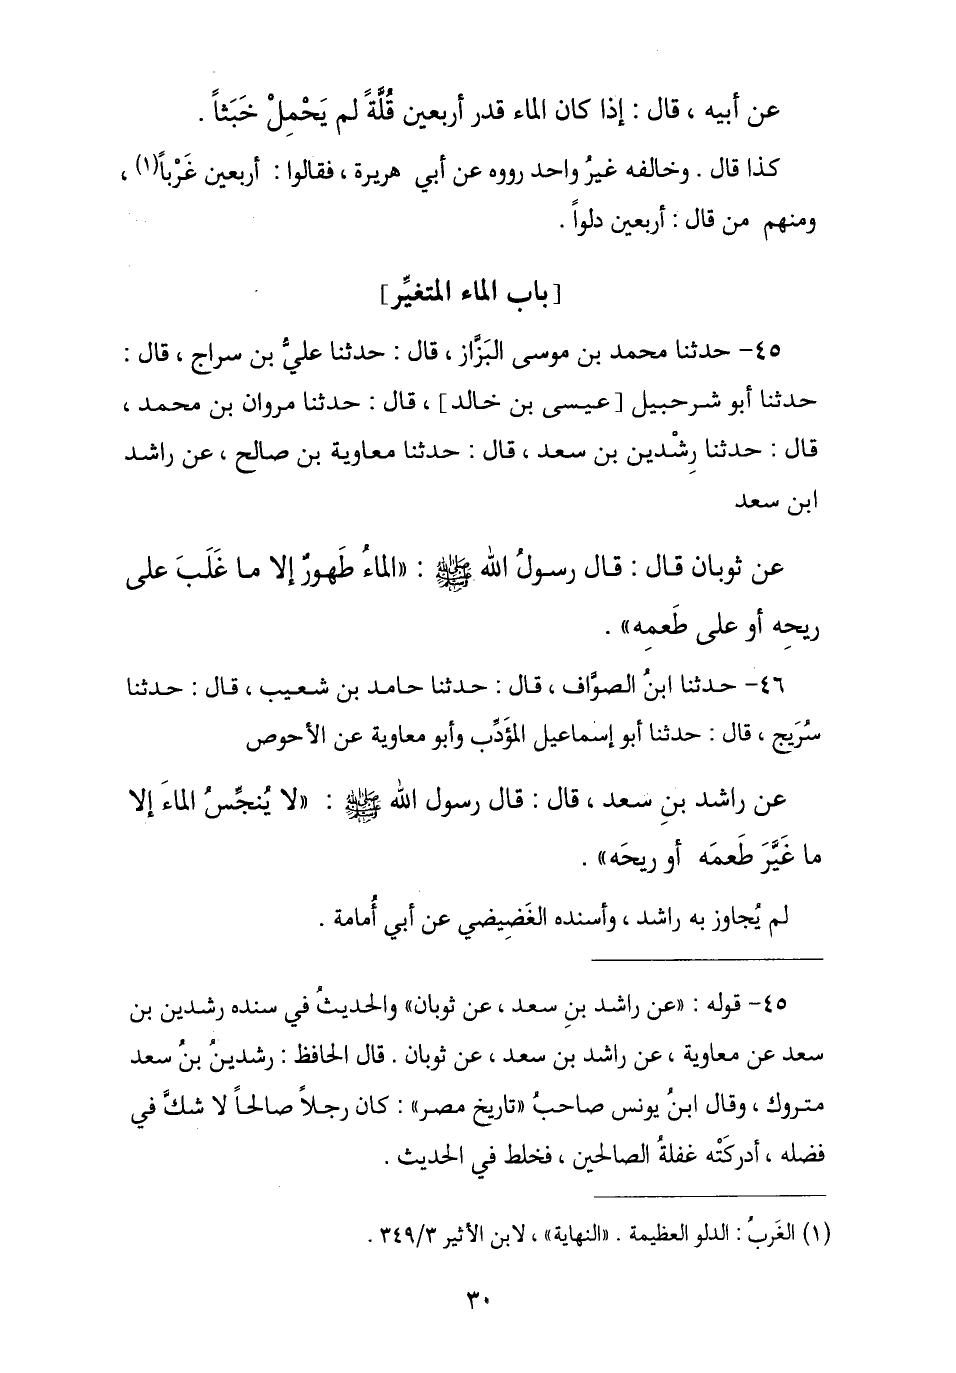 عن أبيه ، قال : إذا كان الماء قدر أربعين قُلَّةً لم يَحْمِلْ خَبَثاً .
كذا قال . وخالفه غيرُ واحد رووه عن أبي هريرة ، فقالوا : أربعين غَرْباً(١) ،
ومنهم من قال : أربعين دلواً .
[باب الماء المتغيِّر]
٤٥- حدثنا محمد بن موسى البَزَّاز ، قال : حدثنا عليُّ بن سراج ، قال :
حدثنا أبو شرحبيل [عيسى بن خالد] ، قال : حدثنا مروان بن محمد ،
قال : حدثنا رِشْدين بن سعد ، قال : حدثنا معاوية بن صالح ، عن راشد
ابن سعد
عن ثوبان قال : قال رسولُ الله ﷺ : «الماءُ طَهورٌ إلا ما غَلَبَ على
ريحِه أو على طَعمِه» .
٤٦- حدثنا ابنُ الصوَّاف ، قال : حدثنا حامد بن شعيب ، قال : حدثنا
سُرَيج ، قال : حدثنا أبو إسماعيل المؤَدِّب وأبو معاوية عن الأحوص
عن راشد بنِ سعد ، قال : قال رسول الله ﷺ : «لا يُنجِّسُ الماءَ إلا
ما غَيَّرَ طَعمَه أو ريحَه» .
لم يُجاوز به راشد ، وأسنده الغَضِيضي عن أبي أُمامة .
٤٥- قوله : «عن راشد بنِ سعد ، عن ثوبان» والحديثُ في سنده رشدين بن
سعد عن معاوية ، عن راشد بن سعد ، عن ثوبان . قال الحافظ : رشدينُ بنُ سعد
متروك ، وقال ابنُ يونس صاحبُ «تاريخ مصر» : كان رجلاً صالحاً لا شكَّ في
فضله ، أدركَتْه غفلةُ الصالحين ، فخلط في الحديث .
(١) الغَربُ : الدلو العظيمة . «النهاية» ، لابن الأثير ٣٤٩/٣ .
٣٠